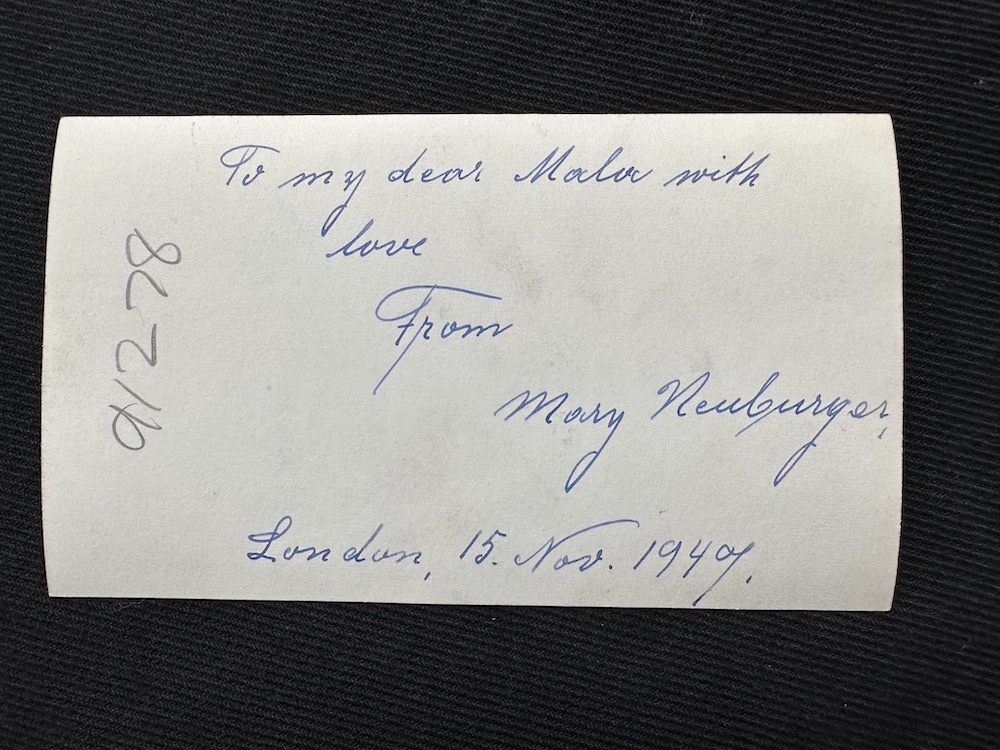 To my dear Mala with
love
From
Mary Neuburger,
London, 15. Nov. 1949.
91278